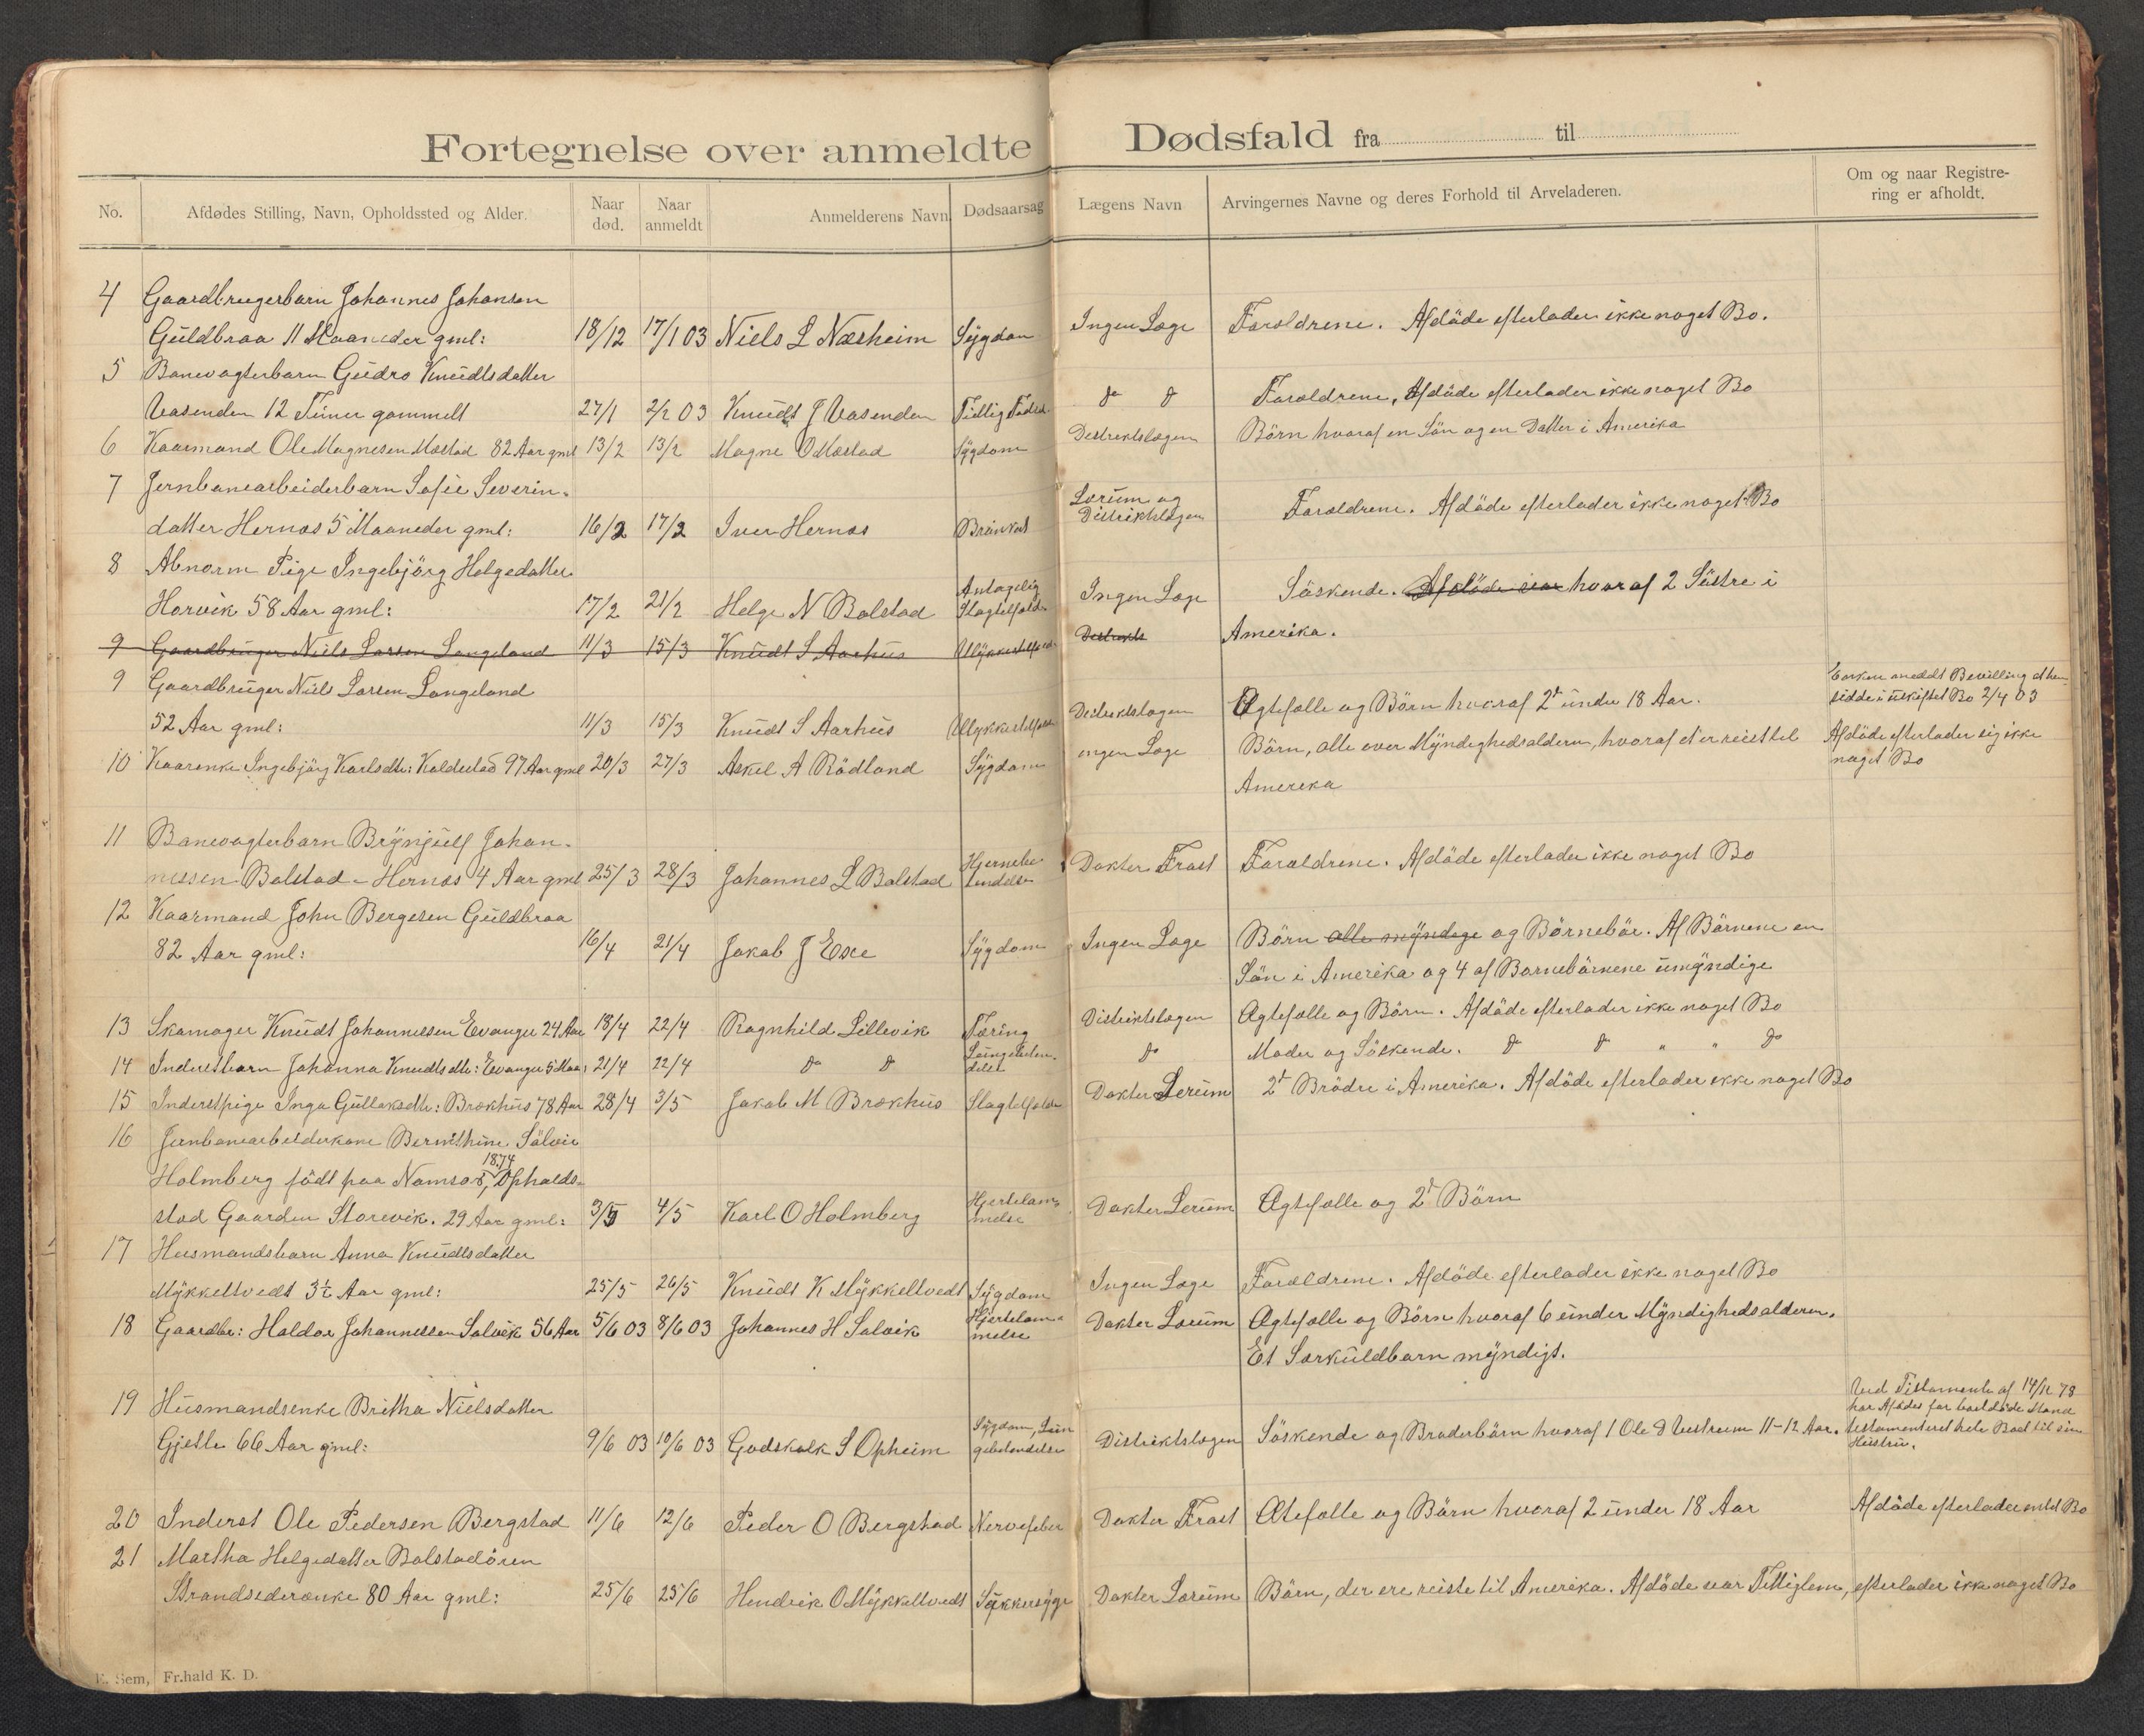 Fortegnelse over anmeldte Dødsfald fra til
No. Afdødes Stilling, Navn, Opholdssted og Alder. Naar død. Naar anmeldt Anmelderens Navn Dødsaarsag Lægens Navn Arvingernes Navne og deres Forhold til Arveladeren. Om og naar Registrering er afholdt.
4 Gaardbrugerbarn Johannes Johansen
Guldbraa 11 Maaneder gml: 18/12 17/1 03 Niels L Næsheim Sygdom Ingen Læge Forældrene. Afdöde efterlader ikke noget Bo.
5 Banevogterbarn Gudro Knudtsdatter
Vasenden 12 Timer gammelt 27/1 2/2 03 Knudt J Vasenden Tidlig Födsel do do Forældrene, Afdöde efterlader ikke noget Bo
6 Kaarmand Ole Magnesen Mæstad 82 Aar gml 13/2 13/2 Magne O Mæstad Sygdom Destrektslægen Börn hvoraf en Sön og en Datter i Amerika
7 Jernbanearbeiderbarn Sofie Severin-
datter Hernæs 5 Maaneder gml: 16/2 17/2 Iver Hernæs Brunkat Lærum og
Distriktslægen Forældrene. Afdöde efterlader ikke noget Bo
8 Abnorm Pige Ingebjörg Helgedatter
Horvik 58 Aar gml: 17/2 21/2 Helge N Bolstad Antagelig
Slagtilfælde Ingen Læge Söskende. Afdöde var hvoraf 2 Söstre i
Amerika.
9 Gaardbruger Niels Larsen Langeland 11/3 15/3 Knudt S Aarhus Ulykkestilfæld Destrekts
9 Gaardbruger Niels Larsen Langeland
52 Aar gml: 11/3 15/3 Knudt S Aarhus Ulykkestilfælde Destrektslægen Ægtefælle og Börn hvoraf 2de under 18 Aar. Enken meddt Bevilling at hen-
sidde i uskiftet Bo 2/4 03
10 Kaarenke Ingebjörg Karlsdtr: Kaldestad 97 Aar gml 20/3 27/3 Askel A Rödland Sygdom ingen Læge Börn, alle over Myndighedsalderen, hvoraf et er reist til
Amerika Afdöde efterlader sig ikke
noget Bo
11 Banevogterbarn Brynjulf Johan-
nessen Bolstad - Hernæs 4 Aar gml 25/3 28/3 Johannes L Bolstad Hjernebe
tendelse Dokter Frost Foræeldrene. Afdöde efterlader ikke noget Bo
12 Kaarmand John Bergesen Guldbraa
82 Aar gml: 16/4 21/4 Jakob J Exe Sygdom Ingen Læge Börn alle myndige og Börnebör. Af Börnene en
Sön i Amerika og 4 af Barnebörnene umyndige
13 Skomager Knudt Johannessen Evanger 24 Aar 18/4 22/4 Ragnhild Lillevik Tæring Distriktslægen Ægtefælle og Börn. Afdöde efterlader ikke noget Bo
14 Inderstbarn Johanna Knudtsdtr: Evanger 5 Maan 21/4 22/4 do do Lungebeten-
delse do Moder og Söskende. do do " " do
15 Inderstpige Inga Gullaksdtr: Brækhus 78 Aar 28/4 3/5 Jakob M Brækhus Slagtilfælde Dokter Lerum 2de Brödre i Amerika. Afdöde efterlader ikke noget Bo
16 Jernbanearbeiderkone Bernthine Sölvie
Holmberg födt paa Namsos, 1874 Opholds-
stad Gaarden Storevik. 29 Aar gml: 3/5 4/5 Karl O Holmberg Hjertelam-
melse Dokter Lerum Ægtefælle og 2de Börn
17 Husmandsbarn Anna Knudtsdatter
Mykkeltvedt 3½ Aar gml: 25/5 26/5 Knudt K Mykkeltvedt Sygdom Ingen Læge Foræeldrene. Afdöde efterlader ikke noget Bo
18 Gaardbr: Haldor Johannessen Solvik 56 Aar 5/6 03 8/6 03 Johannes H Solvik Hjertelam-
melse Dokter Lærum Ægtefælle og Börn hvoraf 6 under Myndighedsalderen.
Et Særkuldbarn myndigt.
19 Husmandsenke Britha Nielsdatter
Gjelle 66 Aar gml: 9/6 03 10/6 03 Godskalk S Opheim Sygdom, Lun
gebetendelse Distriktslægen Söskende og Broderbörn hvoraf 1 Ole D Vestrum 11-12 Aar. Ved Testamente af 14/12 78
har Afdödes før bortdöde Mand
testamenteret hele Boet til sin
Hustru.
20 Inderst Ole Pedersen Bergstad 11/6 12/6 Peder O Bergstad Nervefeber Dokter Frost Ætefælle og Börn hvoraf 2 under 18 Aar Afdöde efterlader intet Bo
21 Martha Helgedatter Bolstadören
Strandsiderenke 80 Aar gml: 25/6 25/6 Hendrik O Mykkeltvedt Sukkersyge Dokter Lærum Börn, der ere reiste til Amerika. Afdöde var Fattiglem, efterlader ikke noget Bo
E. Sem, Fr.hald K. D.